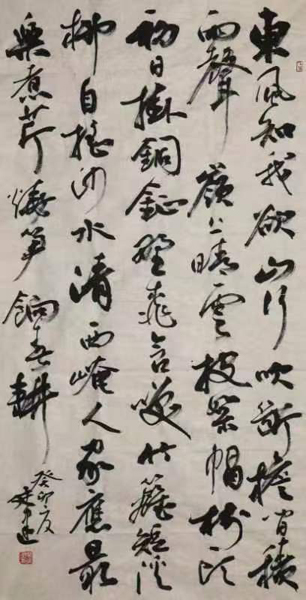 東風知我欲山行吹斷檐間積
雨聲嶺上晴雲披絮帽樹頭
初日掛銅鉦野桃含笑竹籬短溪
柳自搖沙水清西崦人家應最
樂煮芹燒筍餉春耕
癸卯夏